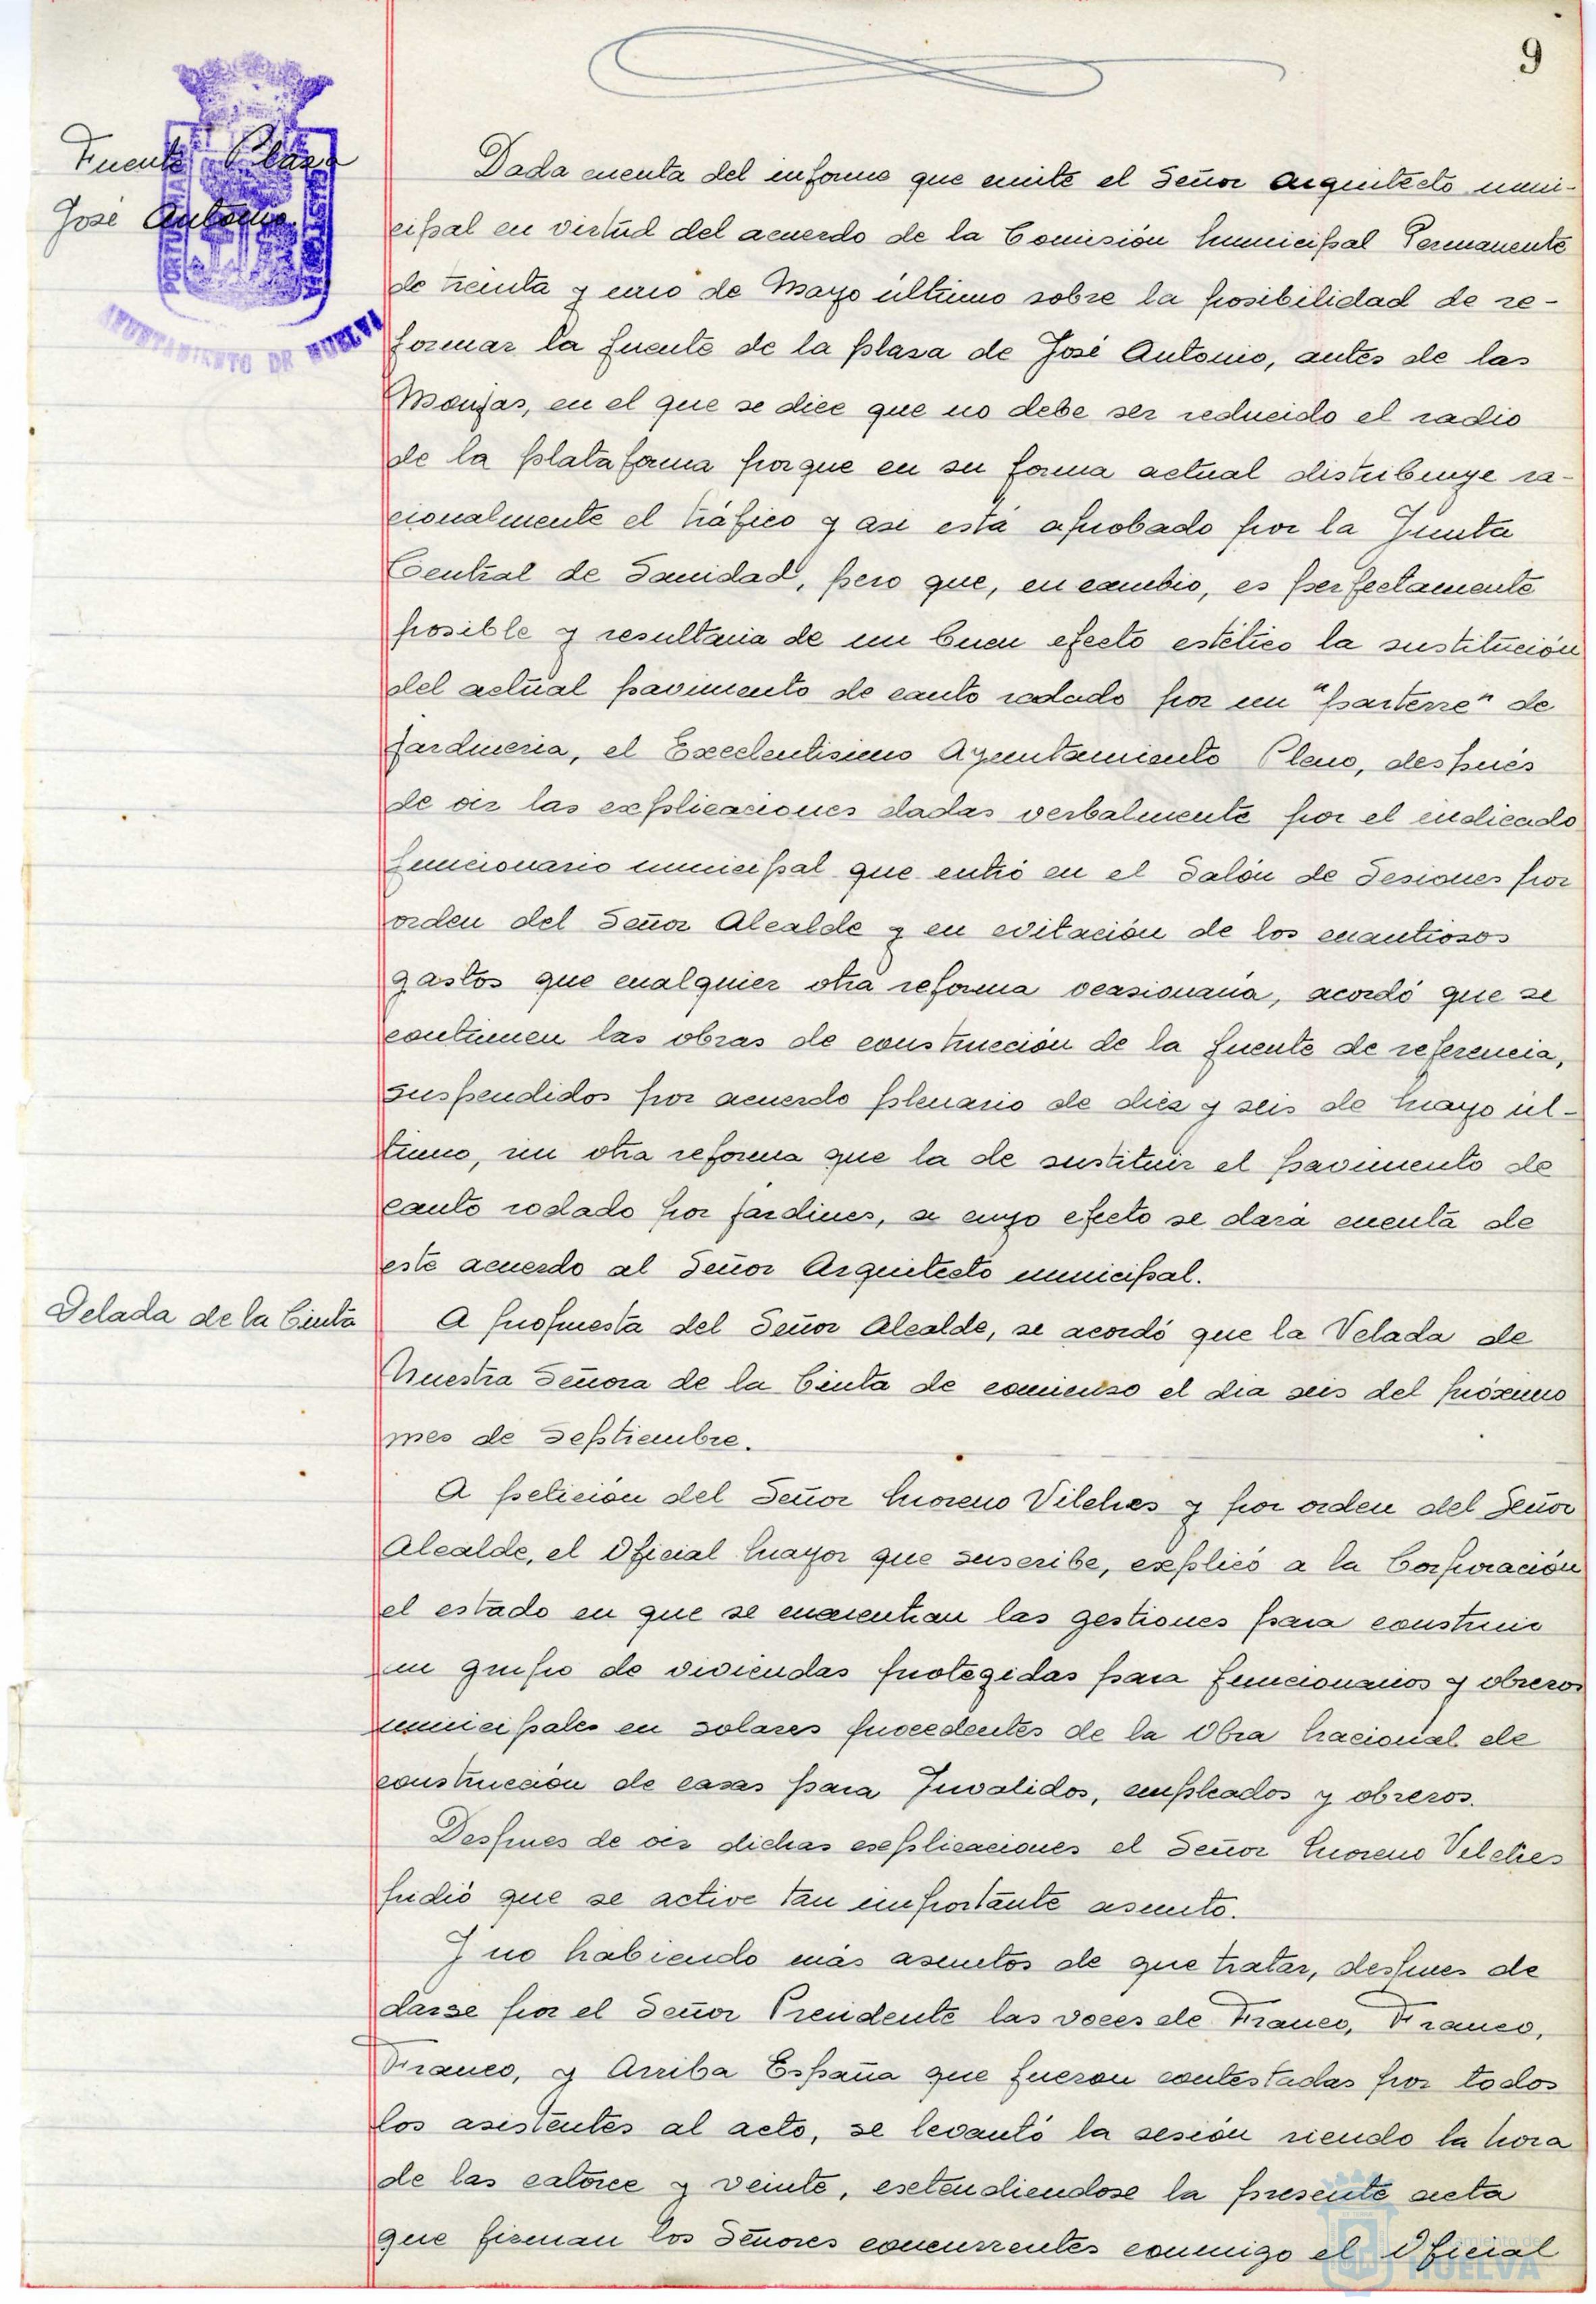 9
Fuente Plaza
José Antonio.
PORTUS MARIS
ET TERRAE
CUSTODIA
AYUNTAMIENTO DE HUELVA
Dada cuenta del informe que emite el Señor Arquitecto muni-
cipal en virtud del acuerdo de la Comisión Municipal Permanente
de treinta y uno de Mayo último sobre la posibilidad de re-
formar la fuente de la plaza de José Antonio, antes de las
Monjas, en el que se dice que no debe ser reducido el radio
de la plataforma porque en su forma actual distribuye ra-
cionalmente el tráfico y asi está aprobado por la Junta
Central de Sanidad, pero que, en cambio, es perfectamente
posible y resultaria de un buen efecto estético la sustitución
del actual pavimento de canto rodado por un "parterre" de
jardineria, el Excelentisimo Ayuntamiento Pleno, después
de oir las explicaciones dadas verbalmente por el indicado
funcionario municipal que entró en el Salón de Sesiones por
orden del Señor Alcalde y en evitación de los cuantiosos
gastos que cualquier otra reforma ocasionaria, acordó que se
continuen las obras de construcción de la fuente de referencia,
suspendidos por acuerdo plenario de diez y seis de Mayo úl-
timo, sin otra reforma que la de sustituir el pavimento de
canto rodado por jardines, a cuyo efecto se dará cuenta de
este acuerdo al Señor Arquitecto municipal.
Velada de la Cinta
A propuesta del Señor Alcalde, se acordó que la Velada de
Nuestra Señora de la Cinta de comienso el dia seis del próximo
mes de Septiembre.
A petición del Señor Moreno Vilches y por orden del Señor
Alcalde, el Oficial Mayor que suscribe, explicó a la Corporación
el estado en que se encuentran las gestiones para construir
un grupo de viviendas protegidas para funcionarios y obreros
municipales en solares procedentes de la Obra Nacional de
construcción de casas para Invalidos, empleados y obreros.
Despues de oir dichas explicaciones el Señor Moreno Vilches
pidió que se active tan importante asunto.
Y no habiendo más asuntos de que tratar, despues de
darse por el Señor Presidente las voces de Franco, Franco,
Franco, y Arriba España que fueron contestadas por todos
los asistentes al acto, se levantó la sesión siendo la hora
de las catorce y veinte, extendiendose la presente acta
que firman los Señores concurrentes conmigo el Oficial
HUELVA